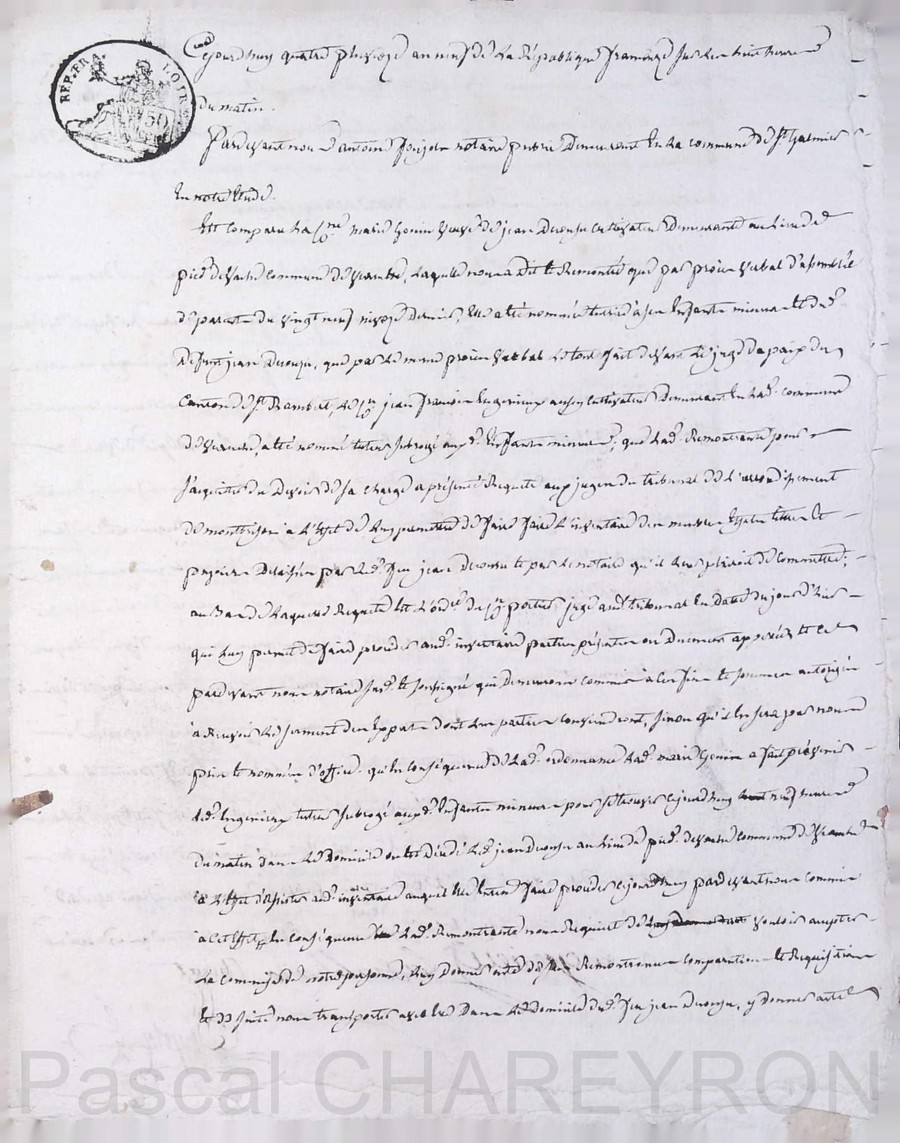 REP. FRA. LOIRE
50
Cejourdhuy quatre pluviose an neuf de la République française sur les huit heures
du matin.
Pardevant nous antoine notaire public demeurant en la commune de St Galmier
en notre étude.
Est comparu la Cne marie Gonin veuve de jean cultivateur demeurante au lieu de
pied de commune de laquelle nous a dit et remontré que par procès verbal d'assemblée
de parents du vingt neuf nivose dernier, elle a été nommée tutrice à ses enfants mineurs et de
défunt jean que par le même procès verbal le tout fait devant le juge de paix du
Canton de St Rambert, le Cn jean françois aussi cultivateur demeurant en lad. commune
de a été nommé tuteur subrogé auxd. enfants mineurs, que lad. Remontrante pour
s'acquitter du devoir de sa charge a présenté Requete aux juges du tribunal de l'arrondissement
de montbrison à l'effet de luy permettre de faire faire l'inventaire des meubles effets titres et
papiers délaissés par led. feu jean et par le notaire qu'il leur plairoit de commettre;
au bas de laquelle Requete est l'ordce du Cn portier juge aud. tribunal en date du jour d'hier
qui luy permet de faire procéder aud. inventaire parties présentes ou duement appelées et ce
pardevant nous notaire susd. et soussigné qui demeurons commis à ces fins et sommes autorisés
à recevoir le serment des experts dont les parties conviendront, sinon qu'il en sera par nous
pris et nommés d'office. qu'en conséquence de lad. ordonnance lad. marie Gonin a fait prévenir
led. tuteur subrogé auxd. enfants mineurs pour se trouver cejourdhuy neuf heures
du matin dans le domicile où est décédé led. jean au lieu de pied. commune de
à l'effet d'assister aud. inventaire auquel elle entend faire procéder cejourdhuy pardevant nous commis
à cet effet, en conséquence lad. Remontrante nous requiert de vouloir accepter
la commission de notre personne, luy donner acte de ses Remontrances comparution et Requisition
et de suite nous transporter avec elle dans le domicile dud. feu jean y donner acte
Pascal CHAREYRON